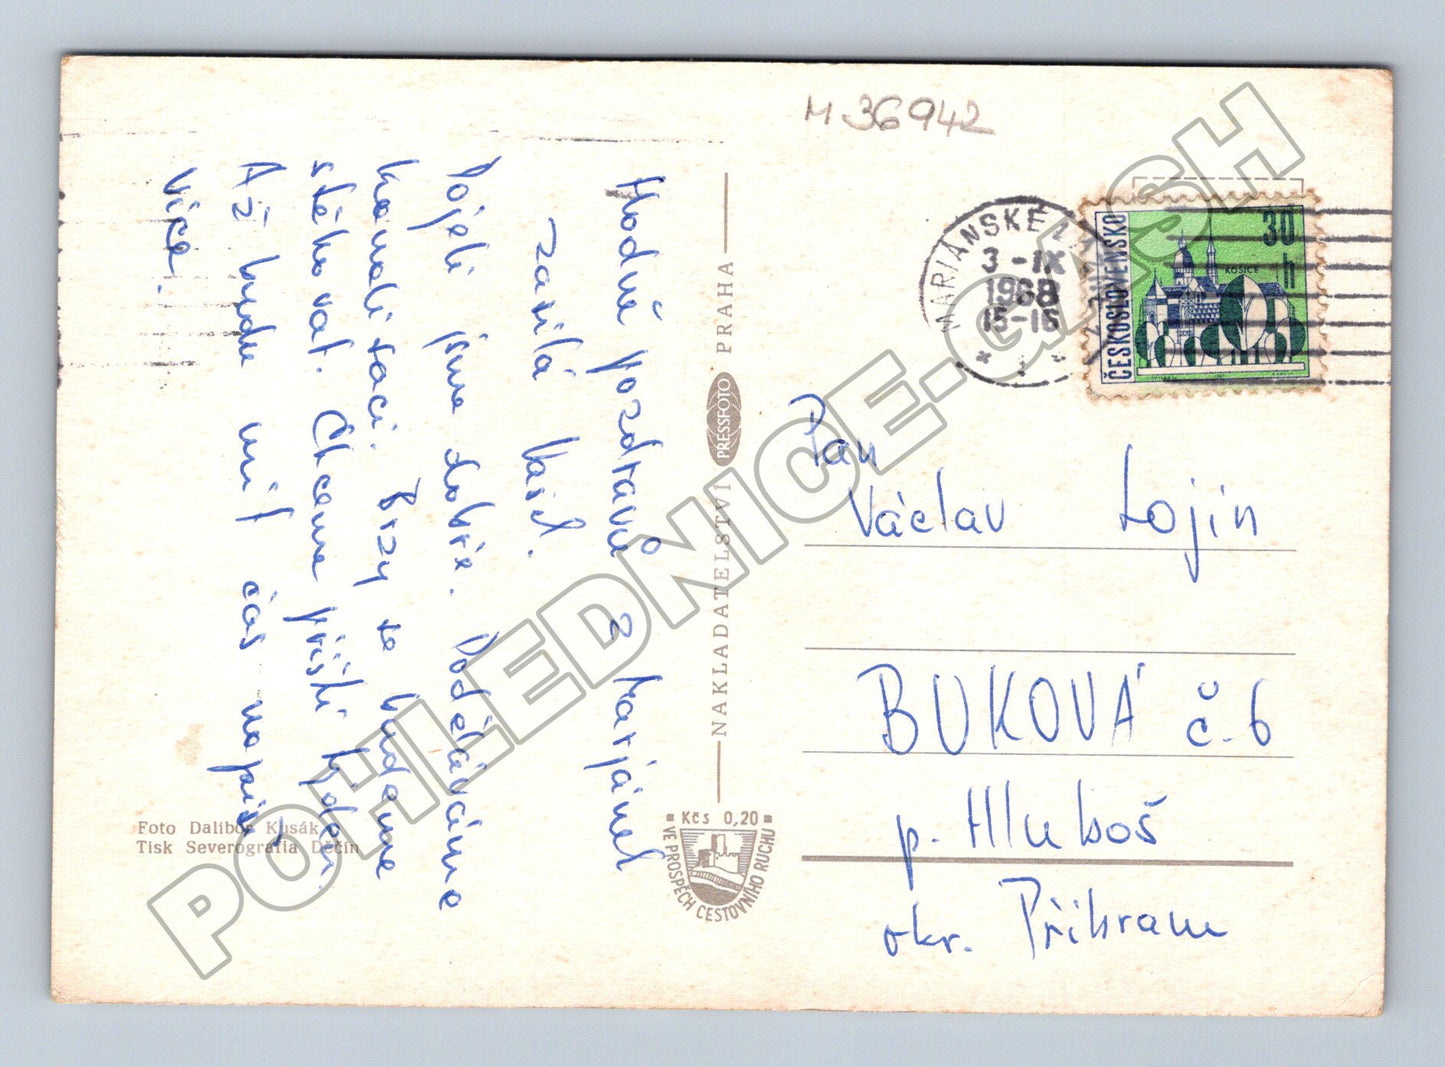 M 36942
Hodně pozdravů z Marjánek
zasílá Vašek.
Dojeli jsme dobře. Poděláváme
kamaráďaci. Brzy se budeme
stěhovat. Chceme příští týden.
Až budu mít čas napíši
více.
Foto Dalibor Kusák
Tisk Severografia Děčín
NAKLADATELSTVÍ PRESSFOTO PRAHA
Kčs 0,20
VE PROSPĚCH CESTOVNÍHO RUCHU
MARIÁNSKÉ LÁ
3 -IX
1968
15-16
ČESKOSLOVENSKO
30 h
KOŠICE
Pan
Václav Lojín
BUKOVÁ č. 6
p. Hluboš
okr. Příbram
POHLEDNICE-GASH